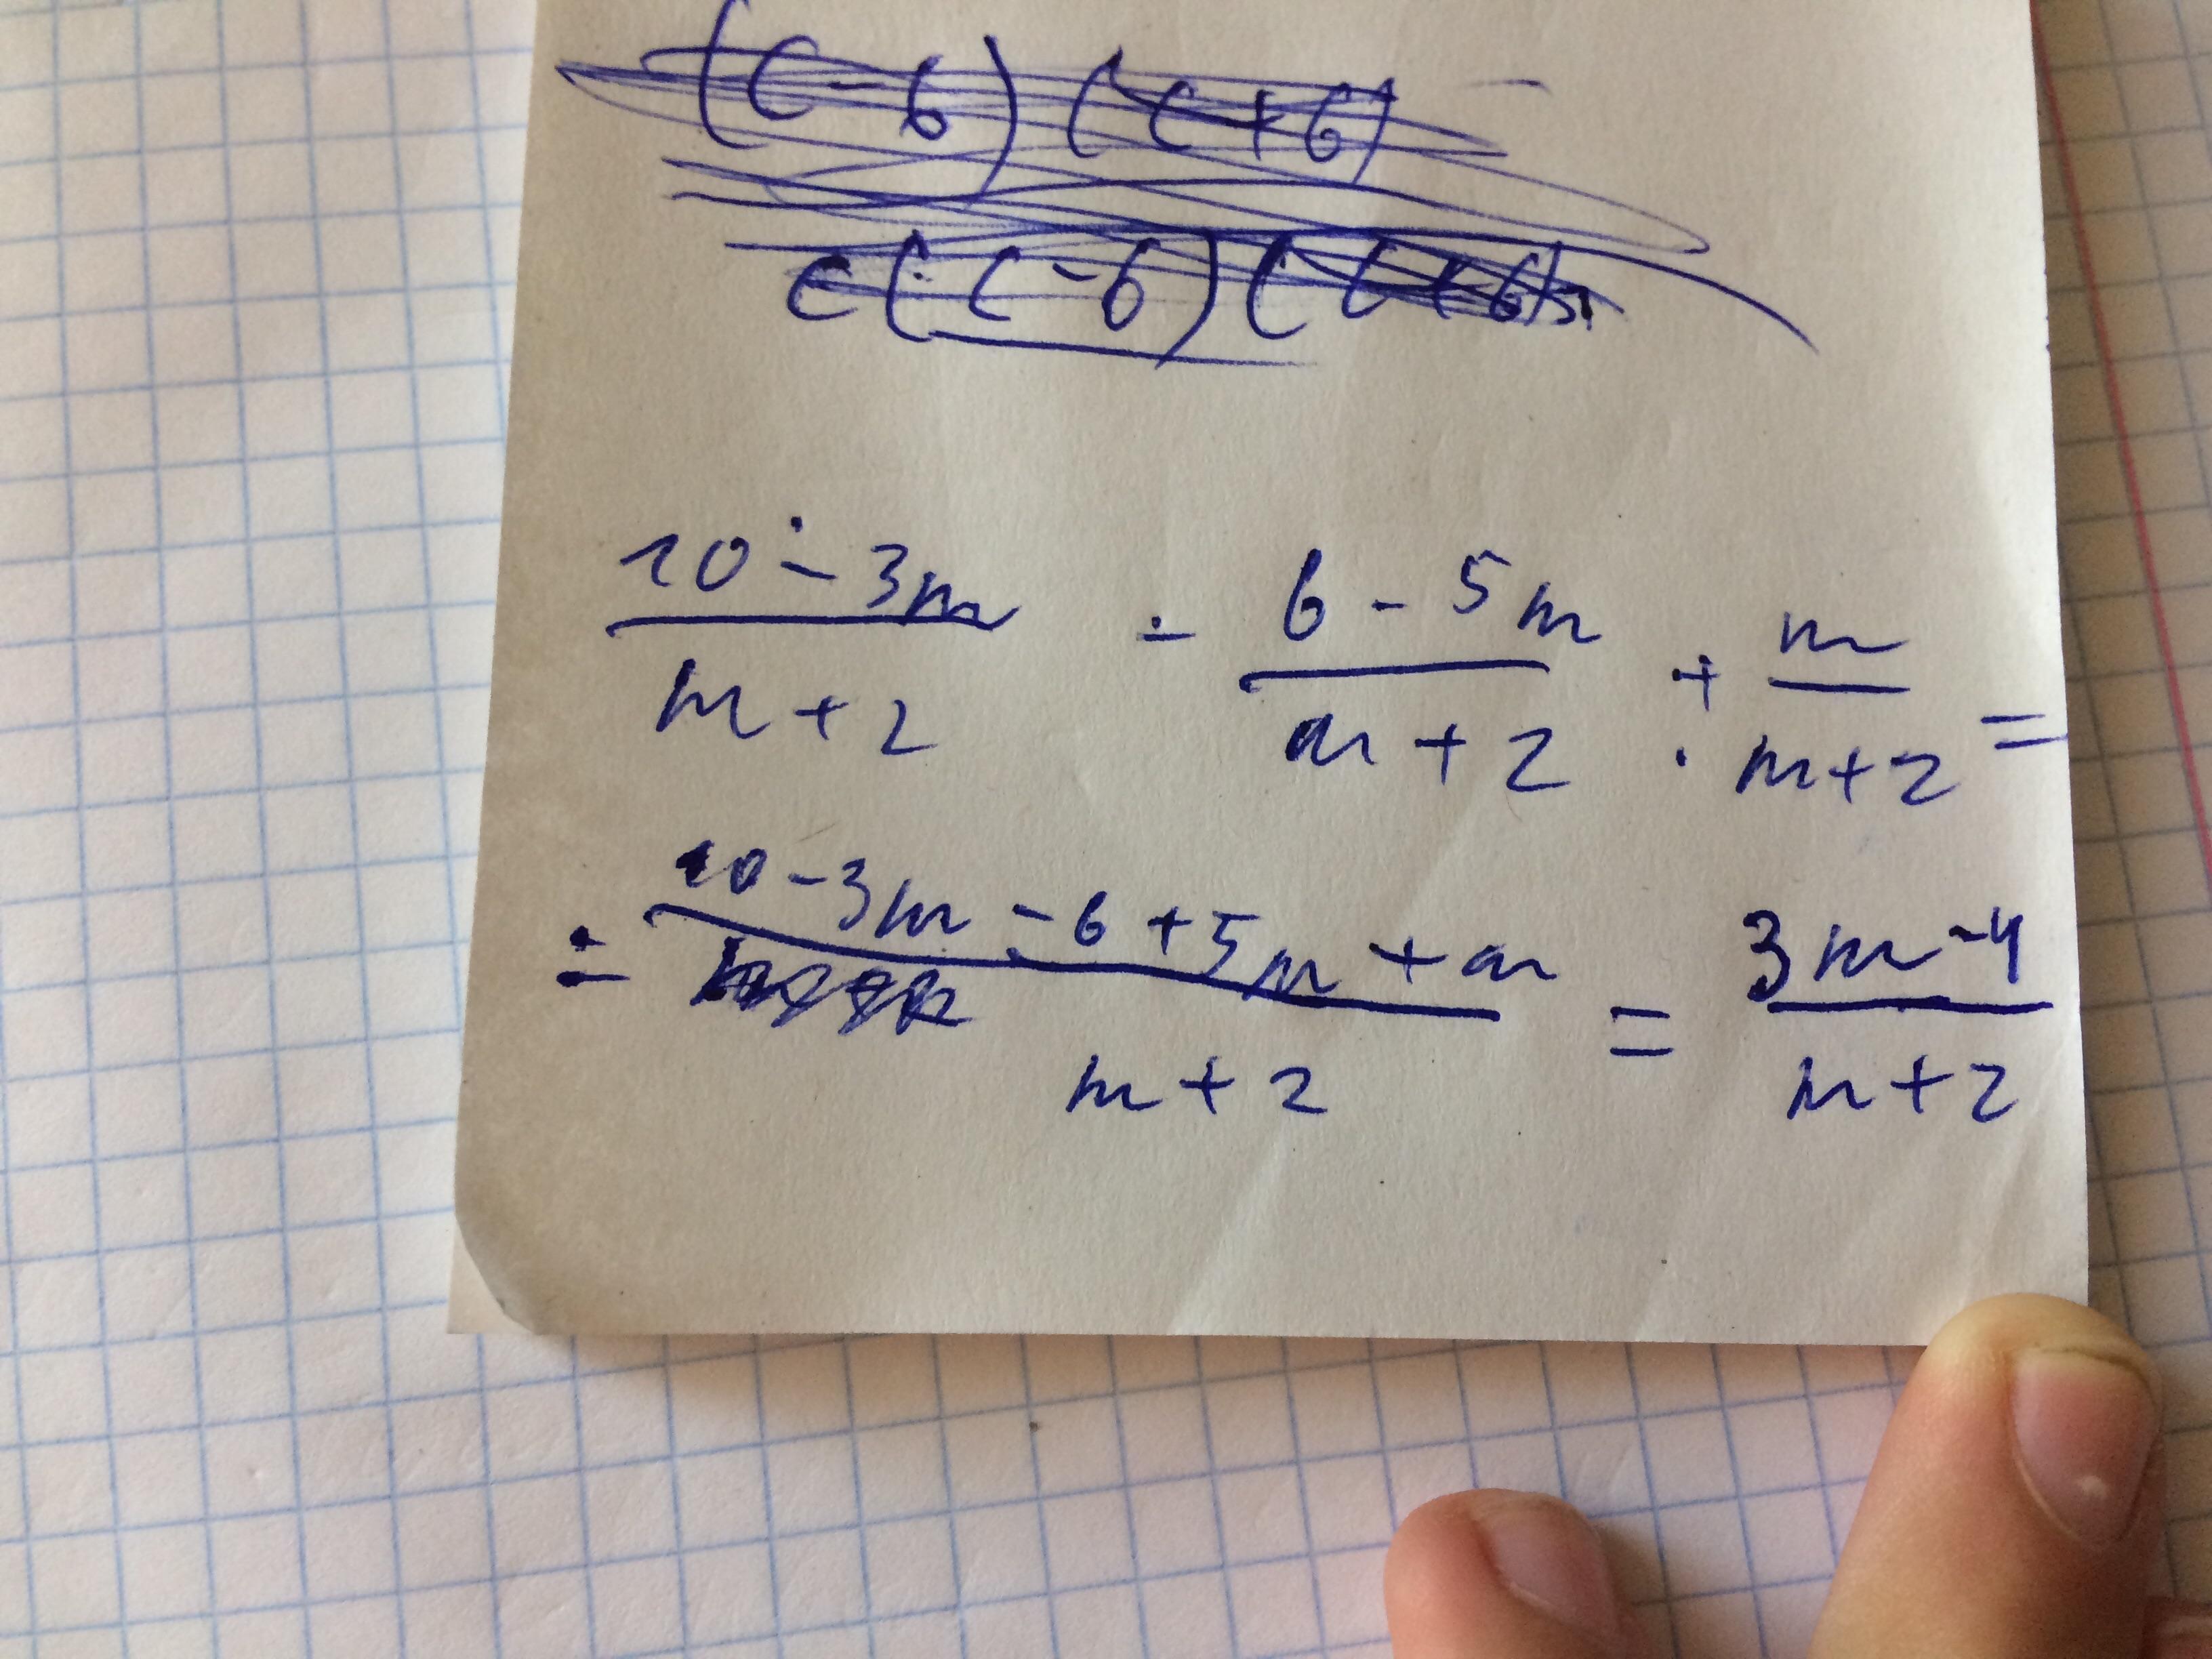 (c-6)(c+6)
c(c-6)(c+6)
10-3m / m+2 - 6-5m / m+2 + m / m+2 =
= 10-3m-6+5m+m / m+2 = 3m-4 / m+2